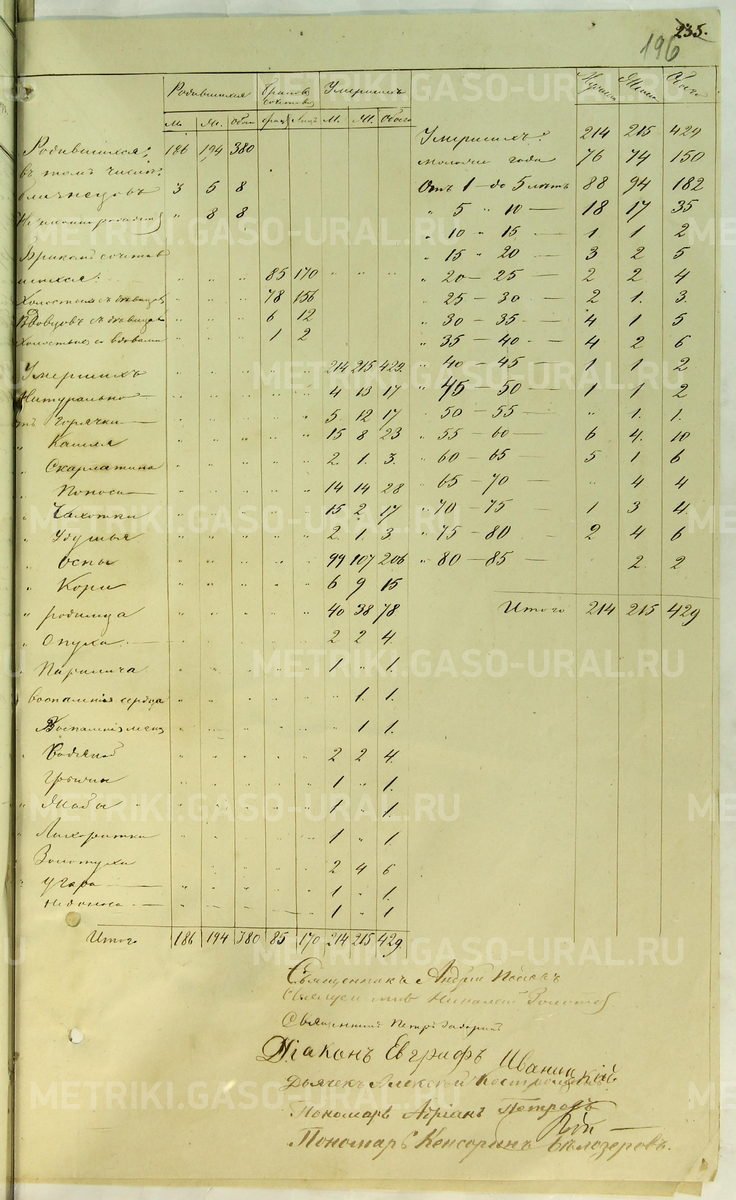 235.
196
Родившихся Браков сочетав Умершихъ Мужеска Женска Обоего
М. Ж. Обоего Браковъ Лицъ М. Ж. Обоего
Родившихся: 186 194 380
въ томъ числѣ:
близнецовъ 3 5 8
Незаконнорожден " 8 8
Бракомъ сочетав
шихся: 85 170
Холостыхъ съ дѣвицами 78 156
Вдовцовъ съ дѣвицами 6 12
Холостыхъ со вдовами 1 2
Умершихъ 214 215 429
Натурально 4 13 17
отъ Горячки 5 12 17
" Кашля 15 8 23
" Скарлатина 2 1. 3.
" Поноса 14 14 28
" Чахотки 15 2 17
" Удушья 2 1 3
" Оспы 99 107 206
" Кори 6 9 15
" родимца 40 38 78
" Опуха 2 2 4
" Паралича 1 " 1.
воспаленія сердца " 1. 1.
Водяной 2 2 4
Грыжи 1 " 1.
" Жабы 1 " 1.
" Лихорадки 1 " 1.
" Золотухи 2 4 6
" Угара 1 " 1.
недоноса 1 " 1
Итого 186 194 380 85 170 214 215 429
Умершихъ: 214 215 429
молодые года 76 74 150
Отъ 1 — до 5 лѣтъ 88 94 182
" 5 " 10 — 18 17 35
" 10 " 15 — 1 1 2
" 15 " 20 — 3 2 5
" 20 — 25 — 2 2 4
" 25 — 30 — 2 1. 3.
" 30 — 35 — 4 1 5
" 35 — 40 — 4 2 6
" 40 — 45 — 1 1 2
" 45 — 50 — 1 1 2
" 50 — 55 — " 1. 1.
" 55 — 60 — 6 4. 10
" 60 — 65 — 5 1 6
" 65 — 70 — " 4 4
" 70 — 75 1 3 4
" 75 — 80 2 4 6
" 80 — 85 — 2 2
Итого 214 215 429
Священникъ Андрей Поповъ
Николай Золотовъ
Священникъ Петръ
Діаконъ Евграфъ Иваницкій
Дьячекъ Алексѣй
Пономарь Адріанъ Петровъ
Пономарь Кенсоринъ Бѣлозеровъ.
METRIKI.GASO-URAL.RU